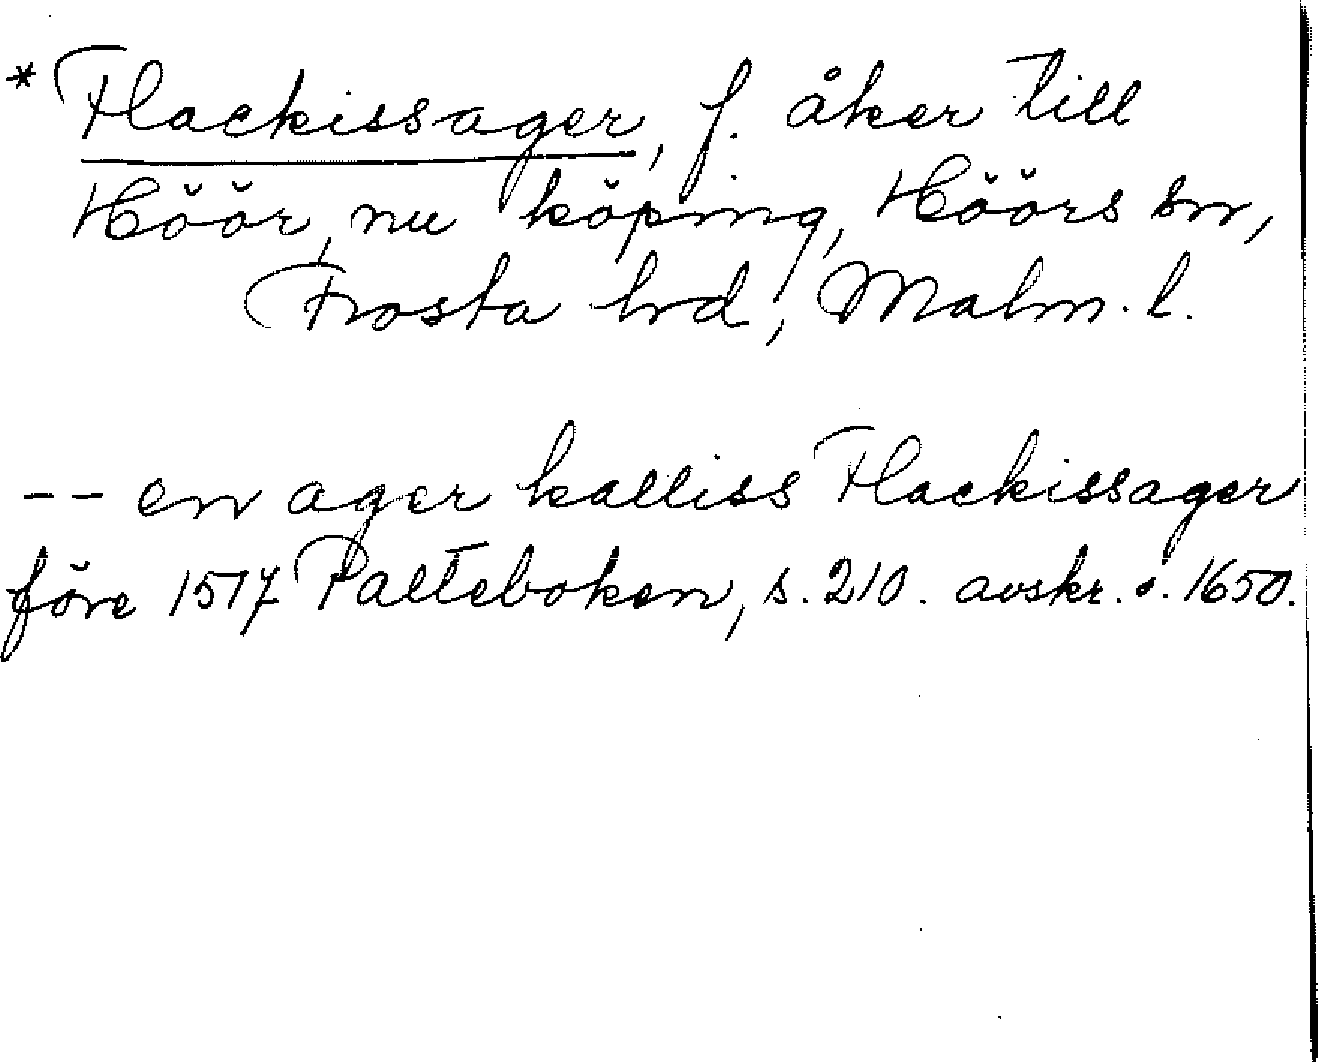 * Flackissager, f. åker till
Höör, nu köping, Höörs sn,
Frosta hrd, Malm. l.
-- en ager kalliss Flackissager
före 1517 Palteboken, s. 210. avskr. o. 1650.